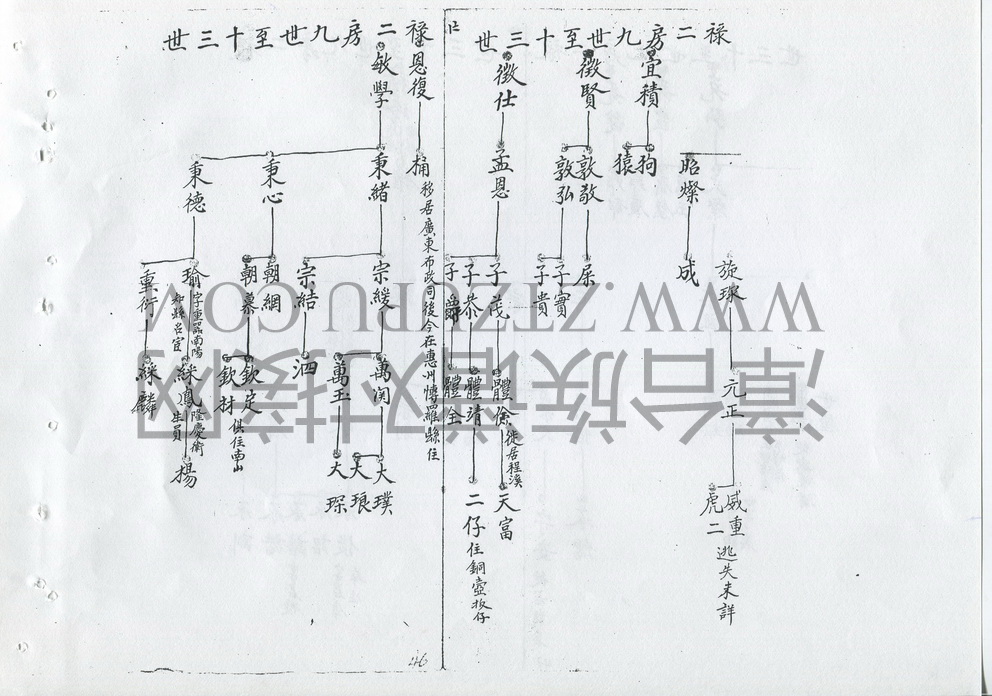 祿二房九世至十三世
宜積
徵賢
徵仕
昭燦
狗
猿
敦敬
敦弘
孟恩
旋璇
成
子實
子貴
子茂
子恭
子爵
元正
體條 徙居程溪
體靖
體全
威重
虎二 逃失未詳
天富
二仔 住銅壺坂仔
祿二房九世至十三世
恩復
敏學
桶 移居廣東布政司後今在惠州博羅縣住
秉緒
秉心
秉德
宗緩
宗結
朝綱
朝慕
瑜
重衍
萬玉
泗
欽定
欽材 俱住南山
綵鳳 隆慶衛 生員
綵麟
大璞
大琅
大琛
揚
46
WWW.ZTZUPU.COM
漳台族谱对接网